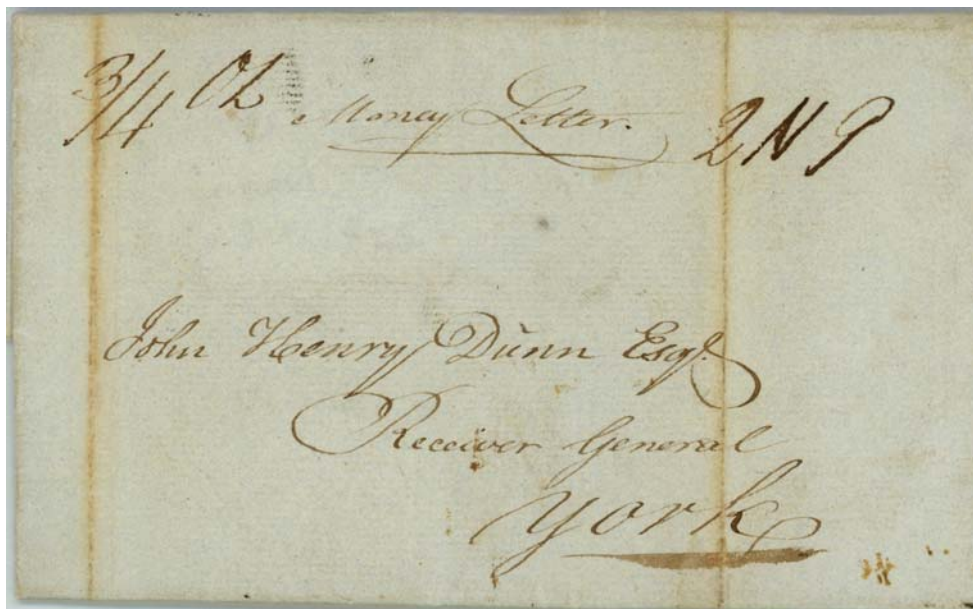 3/4 Oz Money Letter. 2N9
John Henry Dunn Esqr.
Receiver General
York